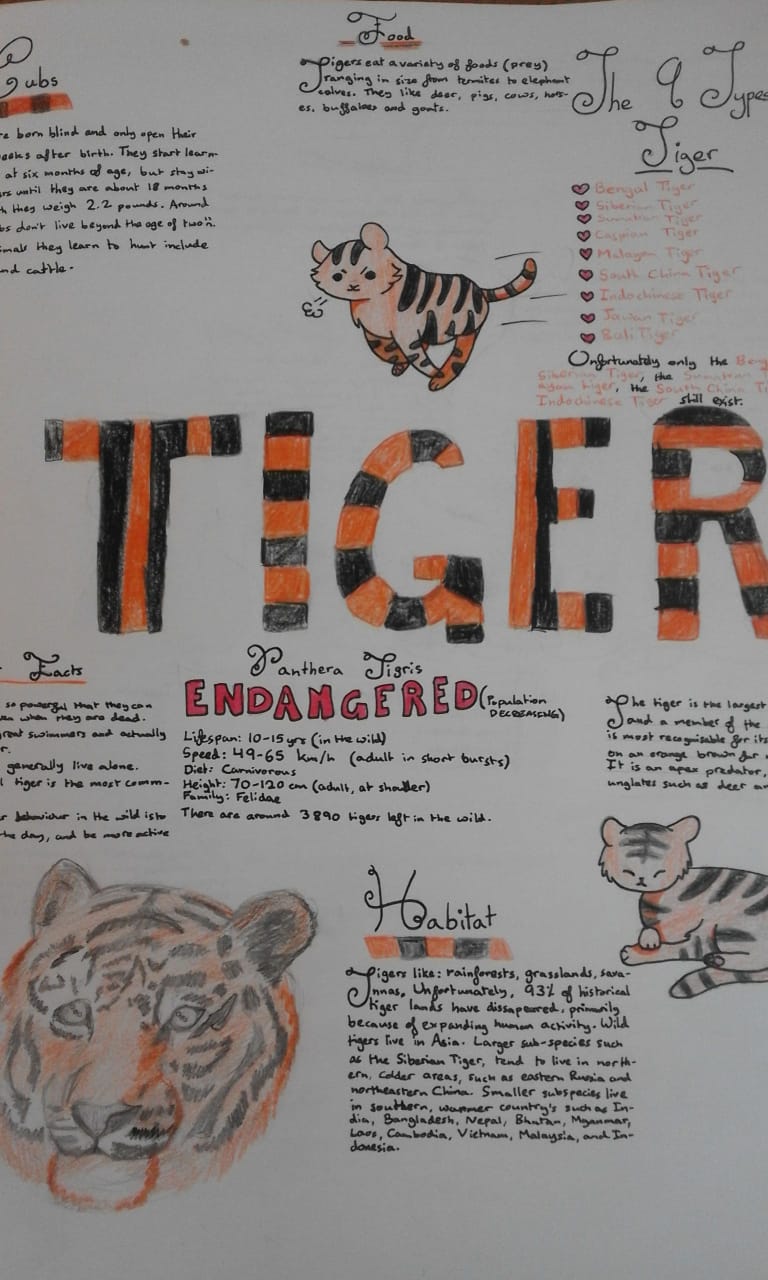 Cubs
re born blind and only open their
eeks after birth. They start learn-
at six months of age, but stay wi-
ers until they are about 18 months
h they weigh 2.2 pounds. Around
bs don't live beyond the age of two".
imals they learn to hunt include
nd cattle.
Food
Tigers eat a variety of foods (prey)
ranging in size from termites to elephant
calves. They like deer, pigs, cows, hors-
es, buffaloes and goats.
The 9 Types
Tiger
Bengal Tiger
Siberian Tiger
Sumatran Tiger
Caspian Tiger
Malayan Tiger
South China Tiger
Indochinese Tiger
Javan Tiger
Bali Tiger
Unfortunately only the Beng
Siberian Tiger, the Sumatran T
ayan tiger, the South China Ti
Indochinese Tiger still exist.
TIGER
Facts
so powerful that they can
ven when they are dead.
great swimmers and actually
r.
generally live alone.
l tiger is the most comm-
r behaviour in the wild is to
the day, and be more active
Panthera Tigris
ENDANGERED (Population
DECREASING)
Lifespan: 10-15 yrs (in the wild)
Speed: 49-65 km/h (adult in short bursts)
Diet: Carnivorous
Height: 70-120 cm (adult, at shoulder)
Family: Felidae
There are around 3890 tigers left in the wild.
The tiger is the largest
and a member of the
is most recognisable for its
on an orange brown fur
It is an apex predator,
unglates such as deer an
Habitat
Tigers like: rainforests, grasslands, sava-
nnas, Unfortunately, 93% of historical
tiger lands have dissapeared, primarily
because of expanding human activity. Wild
tigers live in Asia. Larger sub-species such
as the Siberian Tiger, tend to live in north-
ern, colder areas, such as eastern Russia and
northeastern China. Smaller subspecies live
in southern, warmer country's such as In-
dia, Bangladesh, Nepal, Bhutan, Myanmar,
Laos, Cambodia, Vietnam, Malaysia, and In-
donesia.